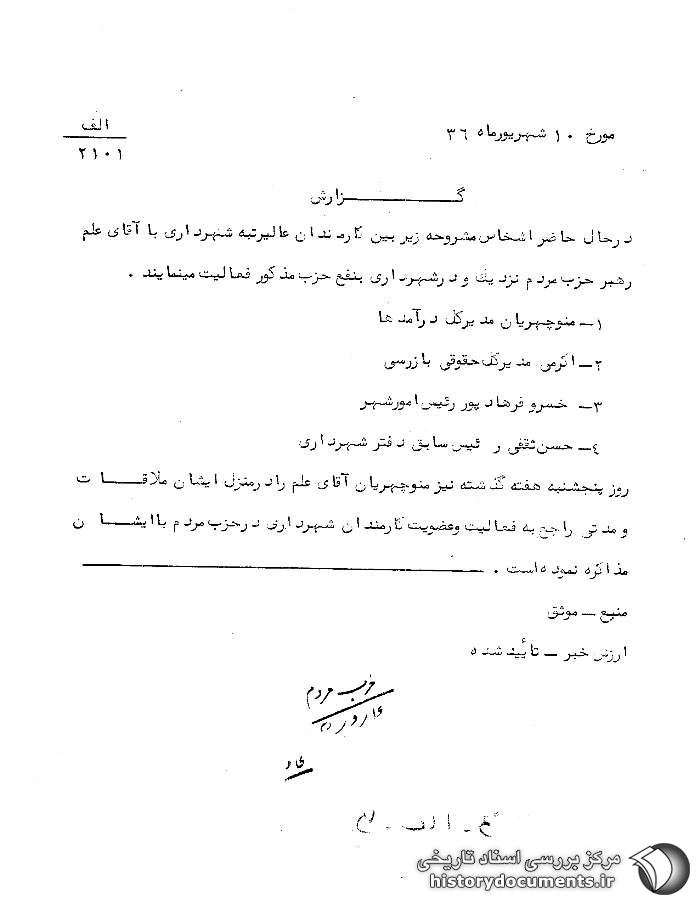 الف
۲۱۰۱
مورخ ۱۰ شهریورماه ۳۶
گـــزارش
درحال حاضر اشخاص مشروحه زیر بین کارمندان عالیرتبه شهرداری با آقای علم
رهبر حزب مردم نزدیک و درشهرداری بنفع حزب مذکور فعالیت مینمایند .
۱– منوچهریان مدیرکل درآمدها
۲– اکرمی مدیرکل حقوقی بازرسی
۳– خسرو فرهادپور رئیس امورشهر
۴– حسن ثقفی رئیس سابق دفتر شهرداری
روز پنجشنبه هفته گذشته نیز منوچهریان آقای علم رادرمنزل ایشان ملاقـــات
و مدتی راجع به فعالیت وعضویت کارمندان شهرداری درحزب مردم باایشـــان
مذاکره نموده است .
منبع – موثق
ارزش خبر – تأیید شده
حزب مردم
مرکز بررسی اسناد تاریخی
historydocuments.ir